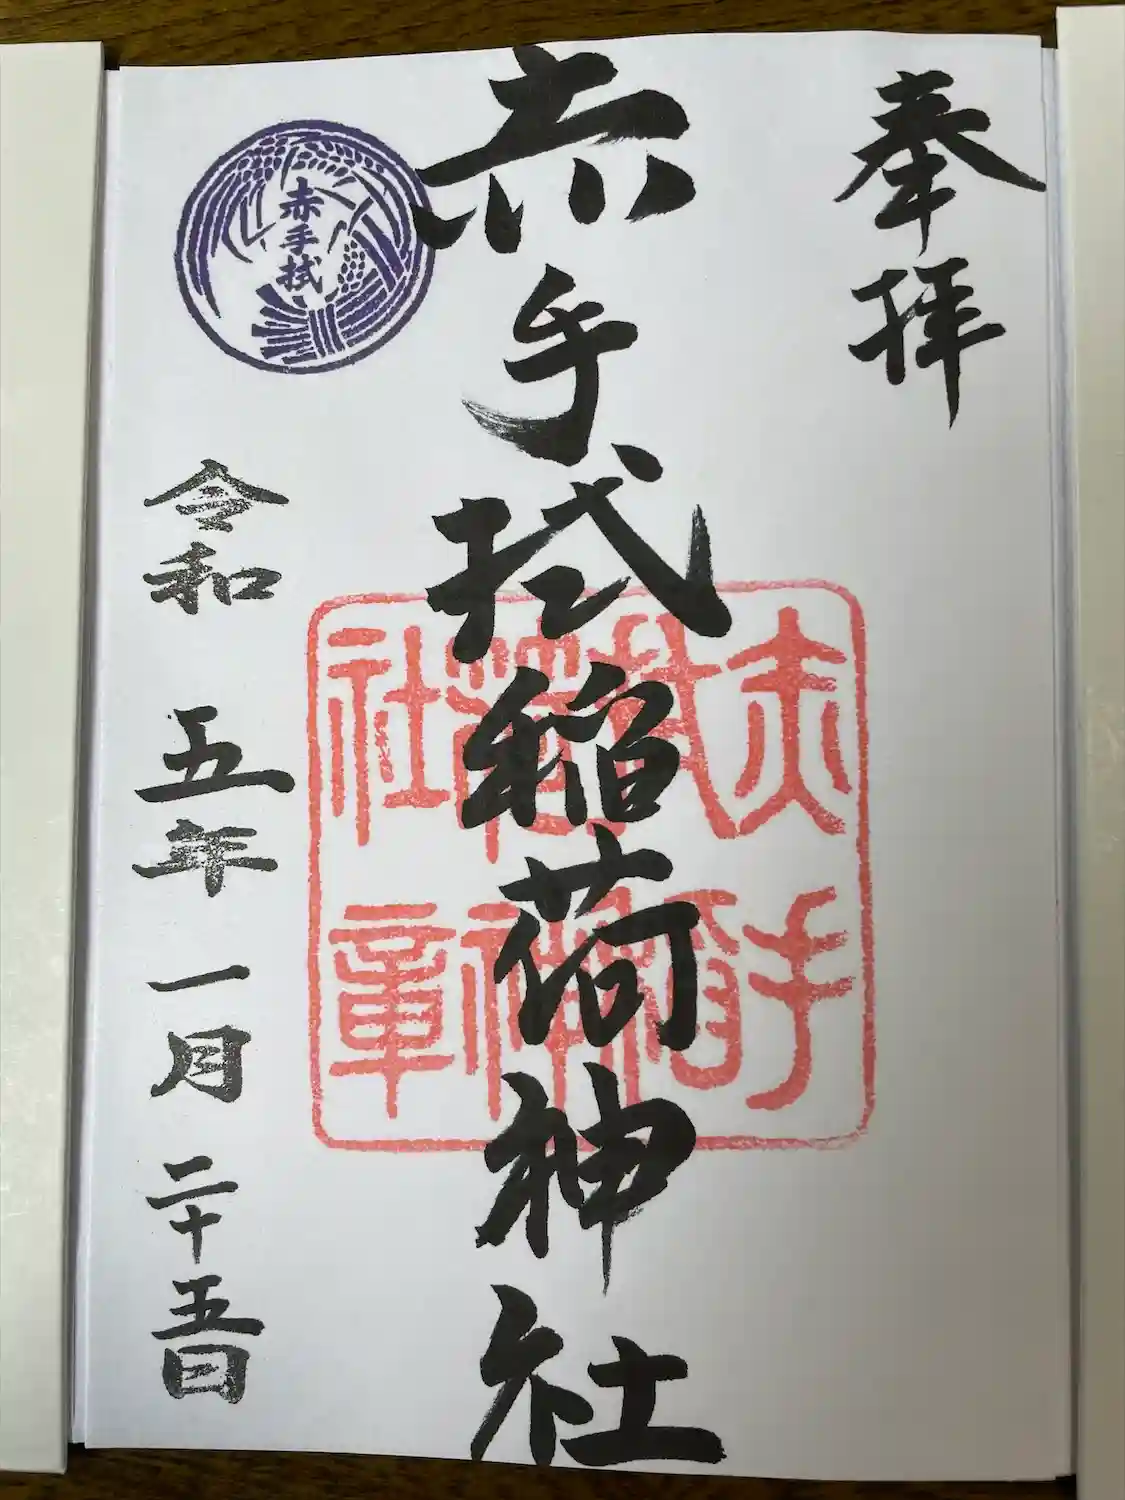 奉拝
赤手拭稲荷神社
赤手拭
令和五年一月二十五日
赤手
拭稲荷神
社章